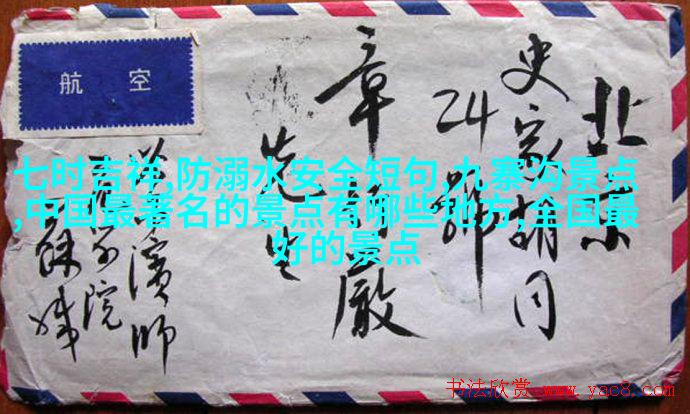 航空
北京
史家胡同
24號
章厰
先生
濱師
院
七时吉祥,防溺水安全短句,九寨沟景点
,中国最著名的景点有哪些地方,全国最
好的景点
书法欣赏 www.yac8.com